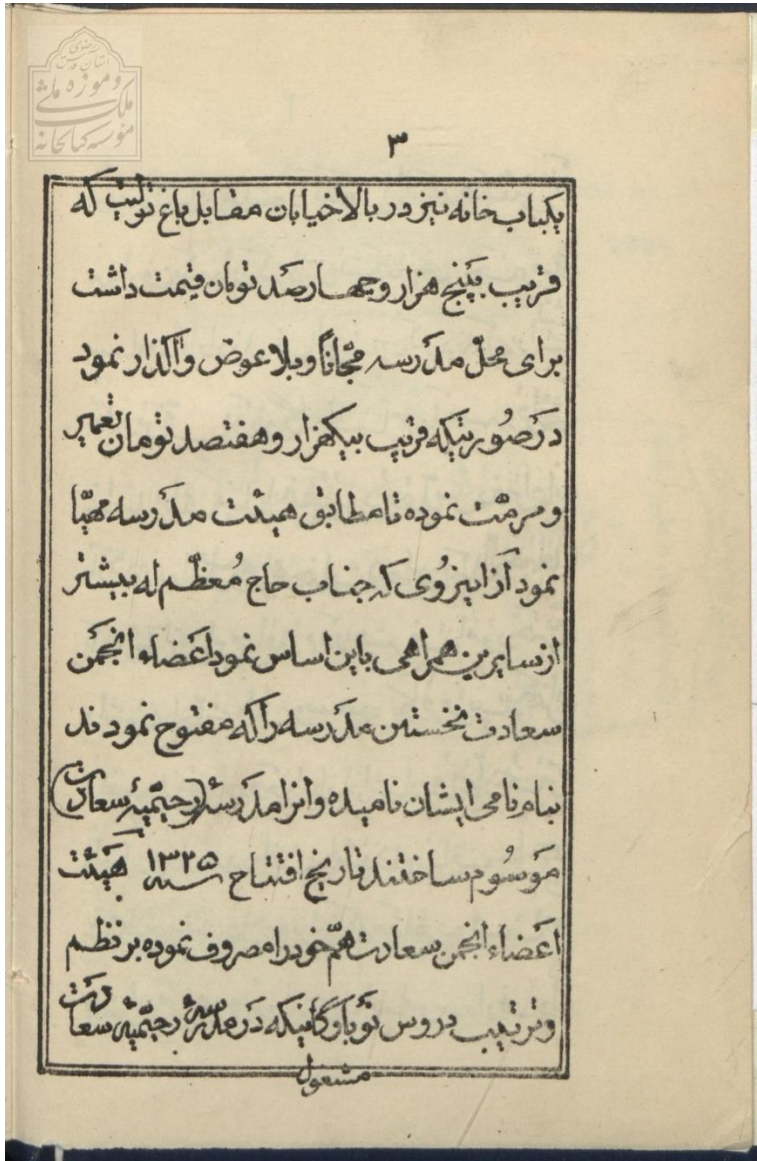 آستان قدس رضوی
موزه ملی
ملک
مؤسسه کتابخانه
۳
یکباب خانه نیز در بالا خیابان مقابل باغ تولیت که
قریب بپنج هزار و چهار صد تومان قیمت داشت
برای محلّ مدرسه مجّاناً و بلا عوض واگذار نمود
در صورتیکه قریب بیکهزار و هفتصد تومان تعمیر
و مرمّت نموده تا مطابق هیئت مدرسه مهیّا
نمود از اینروی که جناب حاج مُعظّم له بیشتر
از سایرین همراهی باین اساس نمود اعضاء انجمن
سعادت نخستین مدرسه را که مفتوح نمودند
بنام نامی ایشان نامیده و انرا مدرسهٔ (رحیمیّهٔ سعادت)
مَوسُوم ساختند تاریخ افتتاح سنه ۱۳۲۵ هَیئت
اعضاء انجمن سعادت همّ خود را مصروف نموده بر نظم
و ترتیب دروس نَوباوگانیکه در مدرسهٔ رحیمیّهٔ سعادت
مشغول